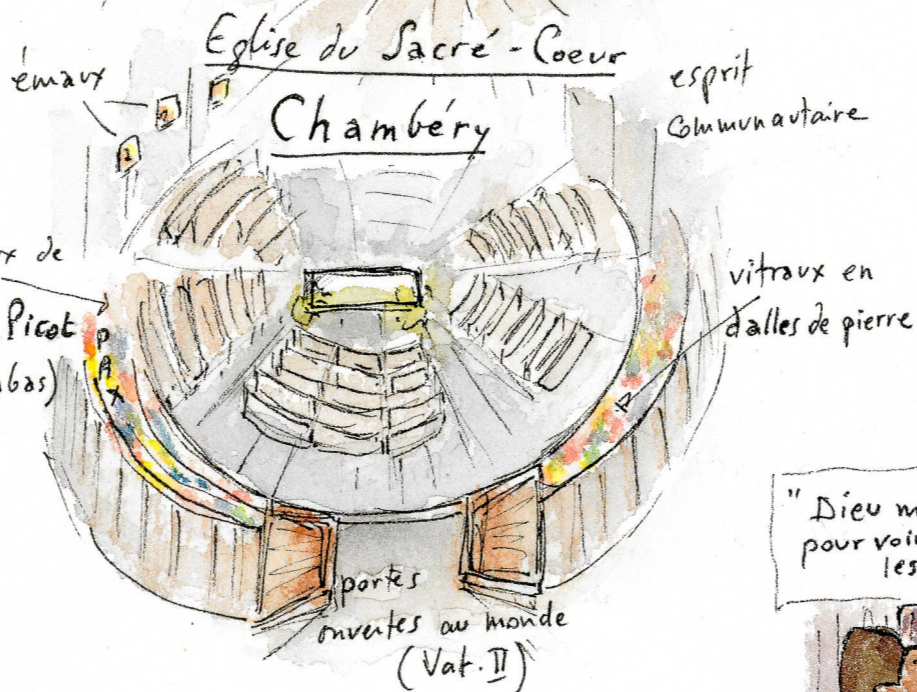 Eglise du Sacré-Coeur
Chambéry
émaux
esprit
communautaire
x de
Picot
bas)
PAX
vitraux en
dalles de pierre
portes
ouvertes au monde
(Vat. II)
" Dieu m
pour voi
les